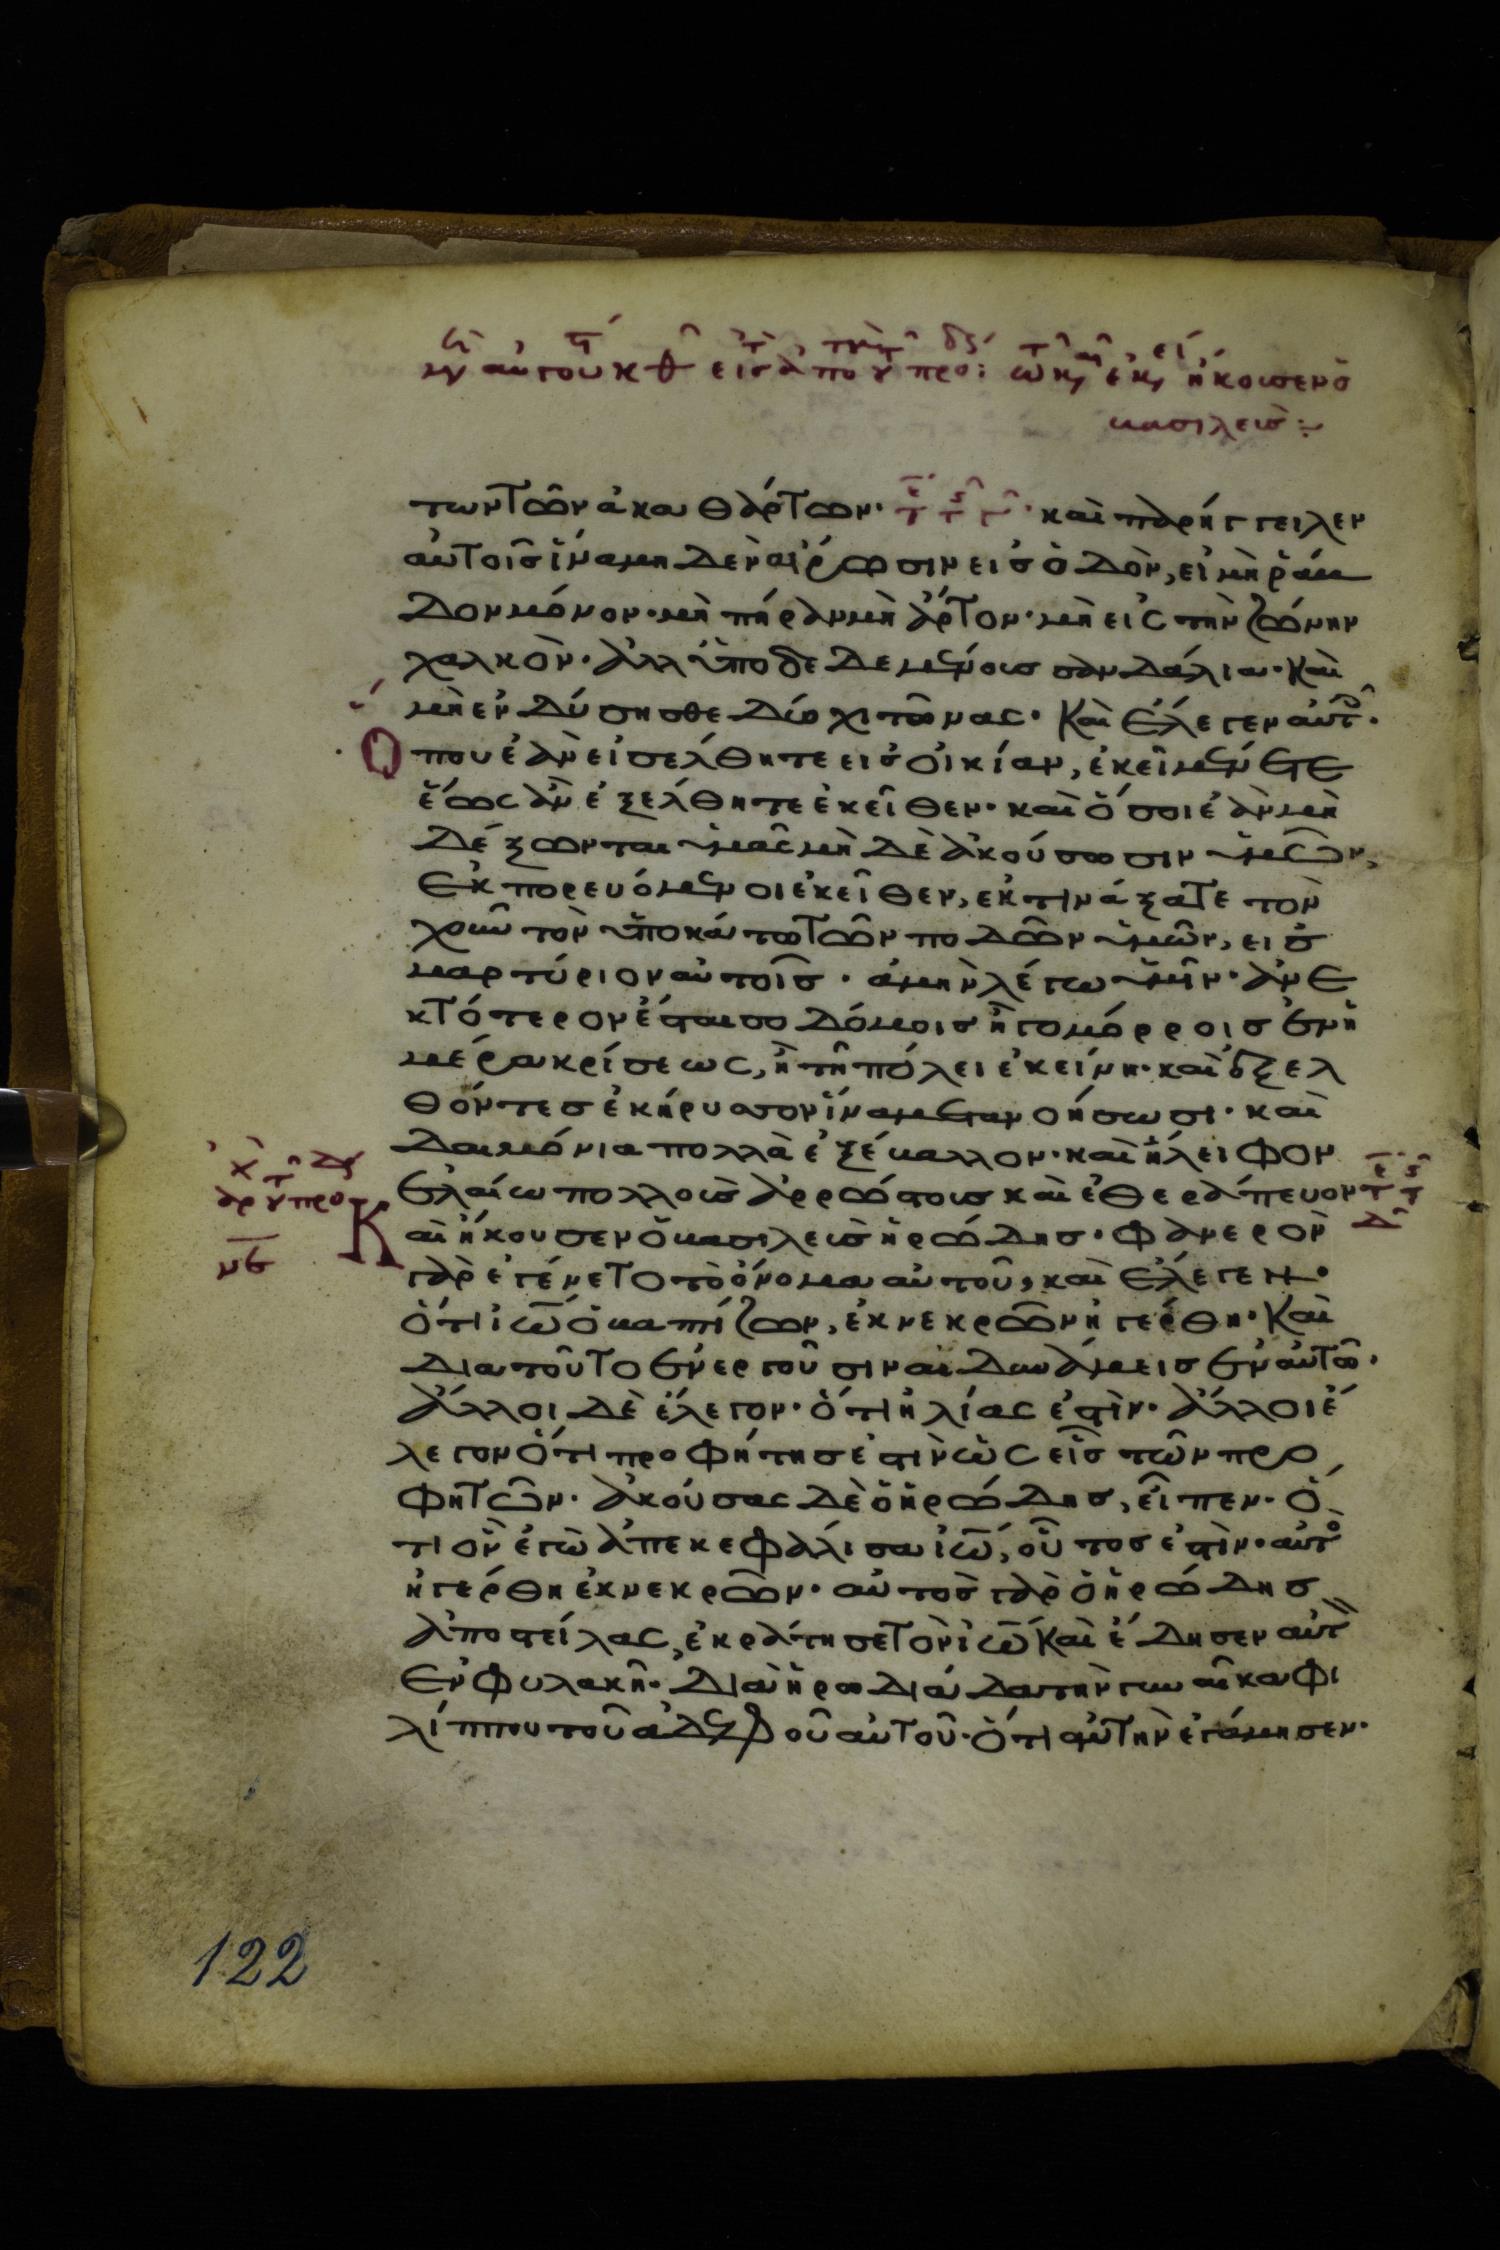 τωντῶνἀκαθάρτων· καὶπαρήγγειλεν
αὐτοῖσἵναμηδὲναἴρωσινεισὁδὸν, εἰμὴράβ
δονμόνον· μὴπήρανμὴἄρτον· μὴεἰς τὴνζώνην
χαλκὸν· ἀλλ' ὑποδεδεμένους σανδάλια· καὶ
μὴἐνδύσησθεδύο χιτῶνας· Καὶ ἔλεγεναὐτ·
Ὅπουἐὰνεἰσέλθητε εισ οἰκίαν, ἐκεῖμένετε
ἕως ἂν ἐξέλθητε ἐκεῖθεν· καὶ ὅσοι ἐὰνμὴ
δέξωνται ὑμᾶς μὴδὲ ἀκούσωσιν ὑμῶν,
ἐκπορευόμενοι ἐκεῖθεν, ἐκτινάξατε τὸν
χοῦν τὸν ὑποκάτωτῶνποδῶν ὑμῶν, εισ
μαρτύριοναὐτοῖσ· ἀμὴνλέγω ὑμῖν· ἀνε
κτότερονέσταισοδόμοισ ἢγομόρροισ ἐνἡ
μέρακρίσεως, ἢτῆπόλειἐκείνη· καὶἐξελ
θόντεσἐκήρυσσονἵναμετανοήσωσι· καὶ
δαιμόνιαπολλὰἐξέβαλλον· καὶἤλειφον
ἐλαίωπολλοὺσἀρρώστουσ καὶἐθεράπευον
Καὶἤκουσενὁβασιλεὺσἡρώδησ· φανερὸν
γὰρἐγένετοτὸὄνομααὐτοῦ, καὶἔλεγεν·
ὅτιἰωὁβαπτίζων, ἐκνεκρῶνἠγέρθη· Καὶ
διατοῦτοἐνεργοῦσιναἱδυνάμεισἐναὐτῶ·
ἄλλοιδὲἔλεγον· ὅτιἠλίας ἐστὶν· ἄλλοιἔ
λεγονὅτιπροφήτησἐστὶνὡς εἷσ τῶνπρο
φητῶν· ἀκούσας δὲὁἡρώδησ, εἶπεν· ὅ
τιὃνἐγὼἀπεκεφάλισαἰω, οὗτοσἐστὶν· αὐτὸ
ἠγέρθηἐκνεκρῶν· αὐτὸσγὰρὁἡρώδησ
ἀποστείλας, ἐκράτησετὸνἰω καὶἔδησεναὐτ
ἐνφυλακῆ· διαἡρωδιάδατὴνγυναῖκαφι
λίππουτοῦἀδελφοῦαὐτοῦ· ὅτιαὐτὴνἐγάμησεν·
122